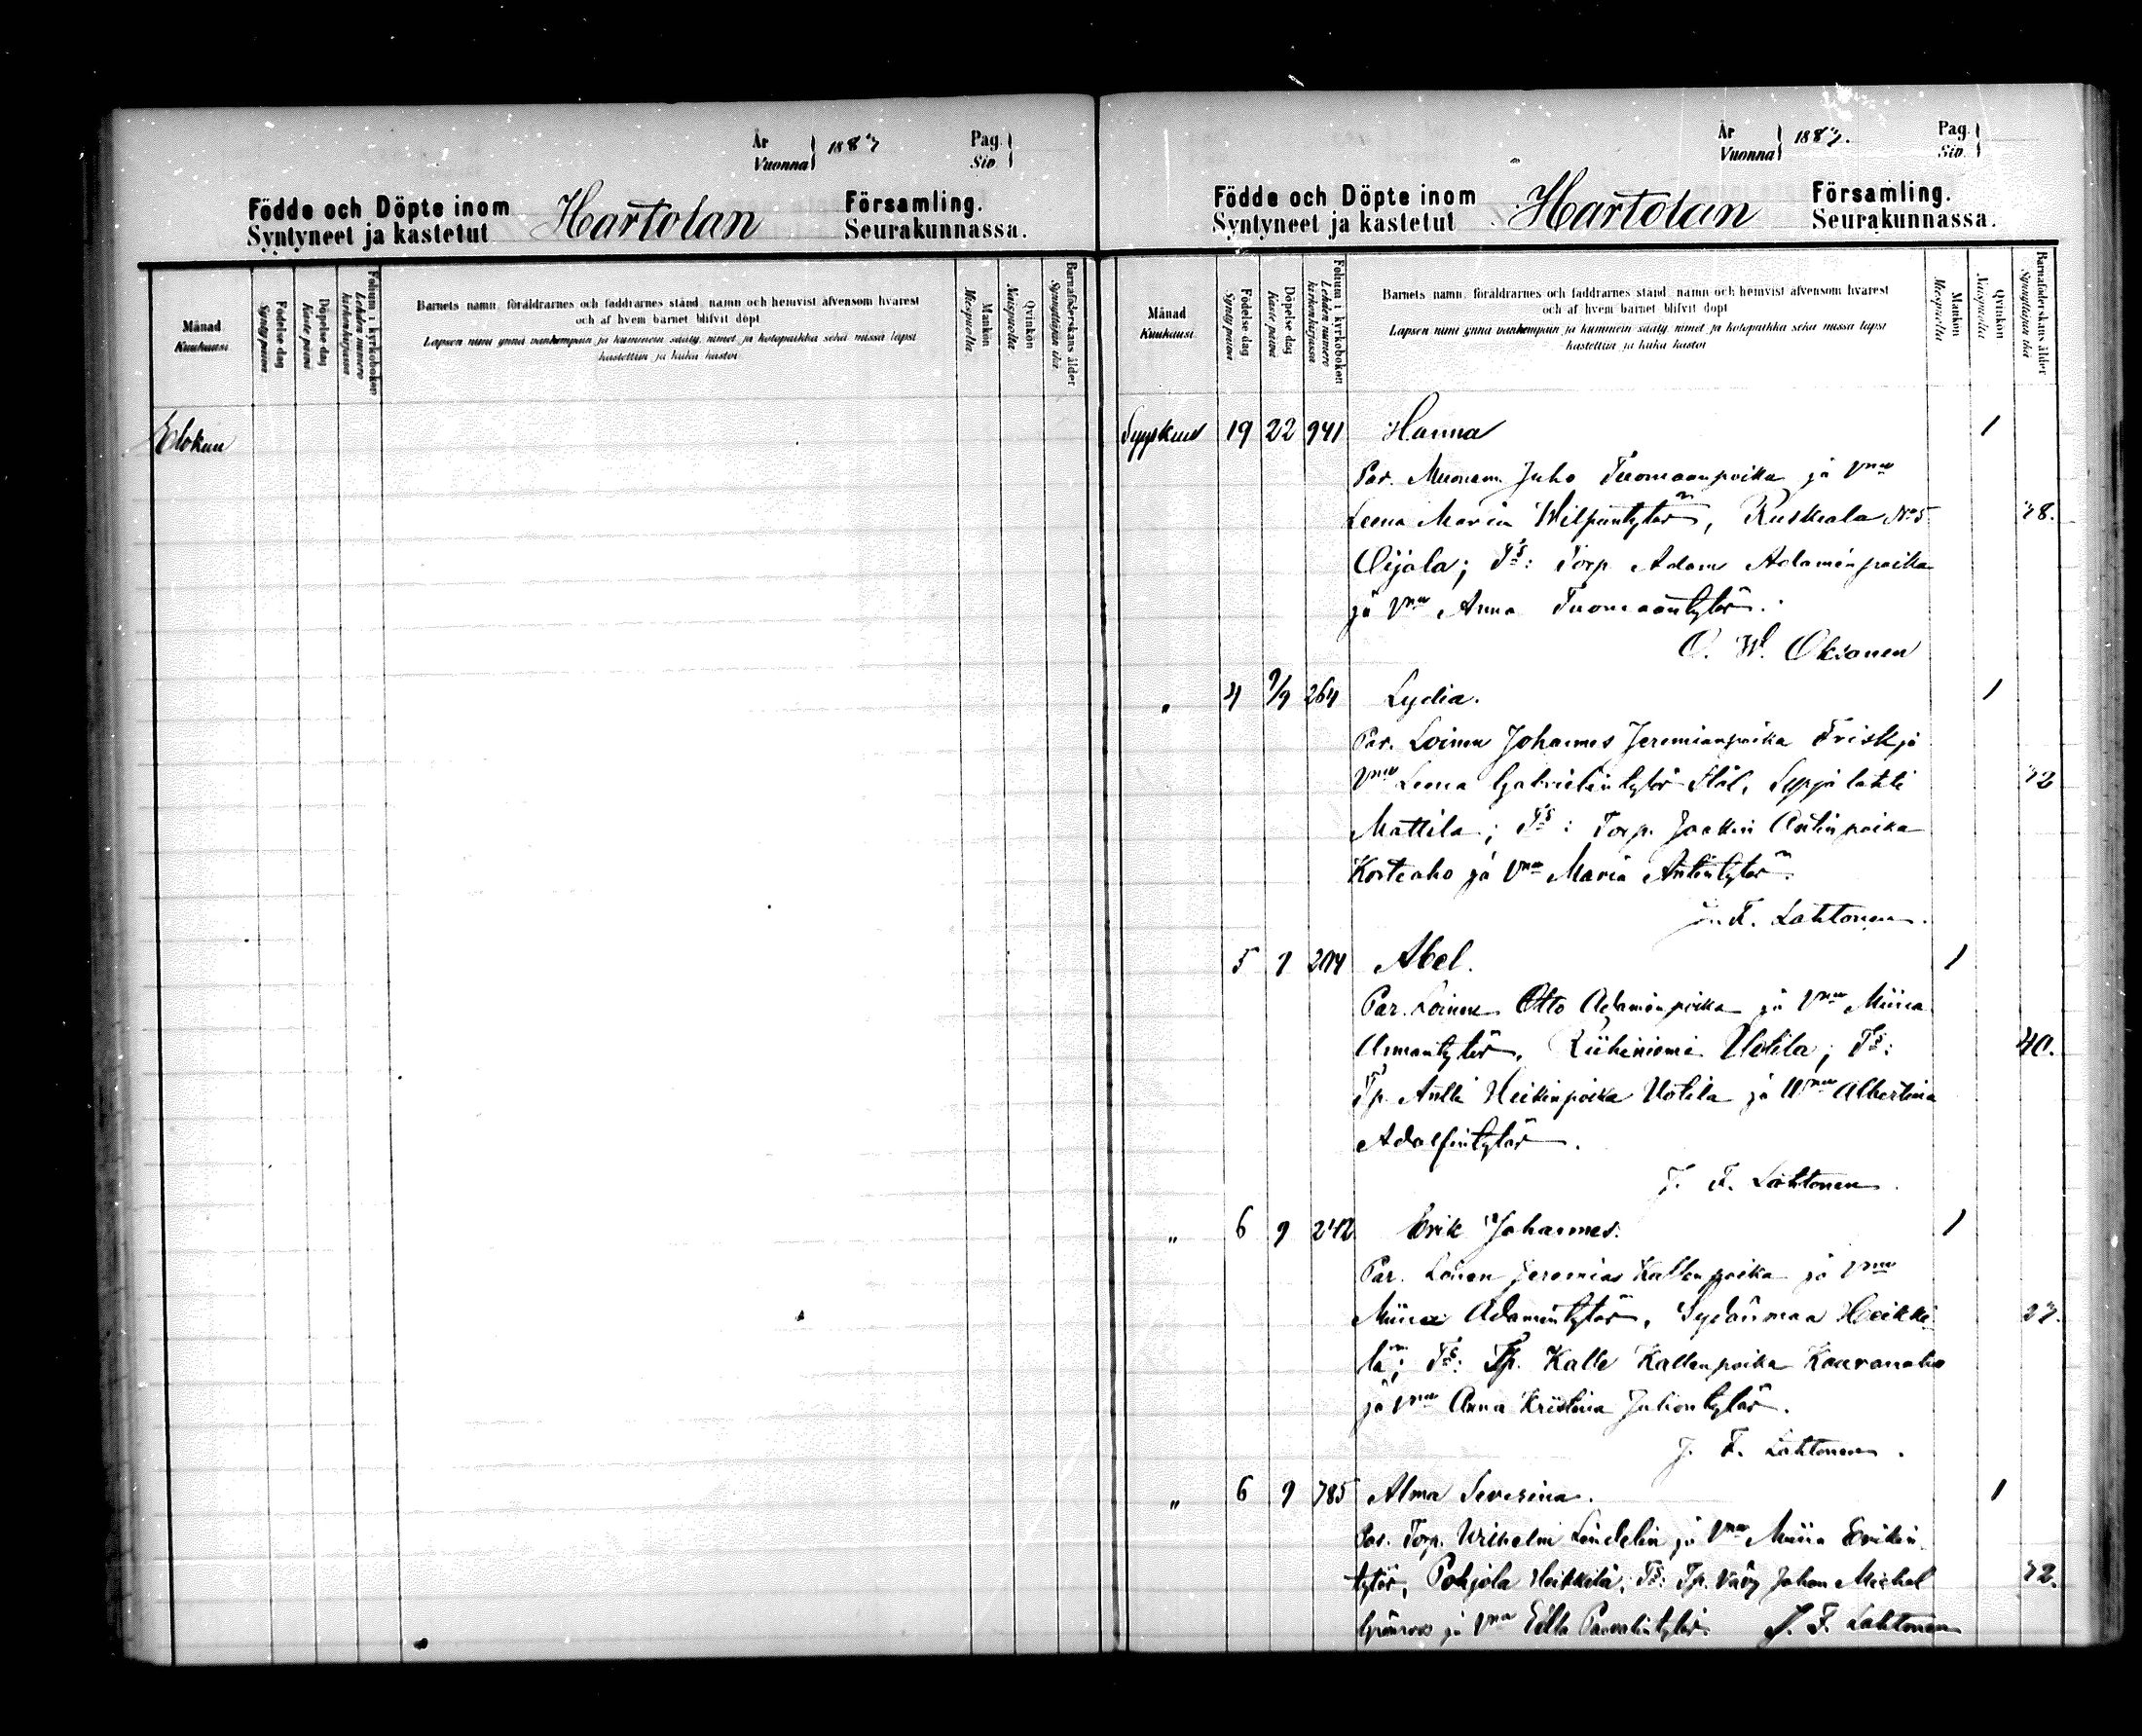 År
Vuonna
1883
Pag.
Siv.
Födde och Döpte inom
Syntyneet ja kastetut
Hartolan
Församling.
Seurakunnassa.
Månad
Kuukausi
Födelse dag
Syntypäivä
Döpelse dag
Kaste päivä
Folium i kyrkoboken
Lehden numero kirkonkirjassa
Barnets namn, föräldrarnes och faddrarnes stånd, namn och hemvist äfvensom hvarest
och af hvem barnet blifvit döpt
Lapsen nimi ynnä vanhempain ja kummein sääty, nimet ja kotopaikka sekä missä lapsi
kastettiin ja kuka kastoi
Mankön
Miespuolta
Qvinkön
Naispuolta
Barnaföderskans ålder
Synnyttäjän ikä
Elokuu
År
Vuonna
1883.
Pag.
Siv.
Födde och Döpte inom
Syntyneet ja kastetut
Hartolan
Församling.
Seurakunnassa.
Månad
Kuukausi
Födelse dag
Syntypäivä
Döpelse dag
Kaste päivä
Folium i kyrkoboken
Lehden numero kirkonkirjassa
Barnets namn, föräldrarnes och faddrarnes stånd, namn och hemvist äfvensom hvarest
och af hvem barnet blifvit döpt
Lapsen nimi ynnä vanhempain ja kummein sääty, nimet ja kotopaikka sekä missä lapsi
kastettiin ja kuka kastoi
Mankön
Miespuolta
Qvinkön
Naispuolta
Barnaföderskans ålder
Synnyttäjän ikä
Syyskuu 19 22 941 Hanna 1
Par. Muonam. Juho Tuomaanpoika ja Vmo
Leena Maria Wilpuntytär, Ruskeala No 5 38.
Oijala; Ts: Torp. Adam Adaminpoika
ja Vmo Anna Tuomaantytär.
O. W. Oksanen
" 4 9/9 264 Lydia. 1
Par. Loinen Johannes Jeremianpoika Frisk ja
Vmo Leena Gabrielintytär Stål, 32
Mattila; Ts: Torp. Joakim Antinpoika
Korteaho ja Vmo Maria Antintytär.
J. F. Lahtonen.
5 9 Abel. 1
Par. Loinen Otto Adaminpoika ja Vmo Miina
Riihiniemi Uotila; Ts: 40.
Tp. Antti Heikinpoika Uotila ja Vmo Albertina
Adolfintytär.
J. F. Lahtonen.
" 6 9 242 Erik Johannes. 1
Par. Loinen Jeremias Kallenpoika ja Vmo
Miina Adamintytär, Sydänmaa Heikki-
lä; Ts: Tp. Kalle Kallenpoika Kauranaho
ja Vmo Anna Kristina Juhontytär.
J. F. Lahtonen.
" 6 9 785 Alma Severina. 1
Par. Torp. Wilhelm Lindelin ja Vmo Miina Erikin-
tytär, Pohjola Heikkilä; Ts: Tp. Johan Michel 32.
Grönroos ja Vmo Edla Paavalintytär. J. F. Lahtonen